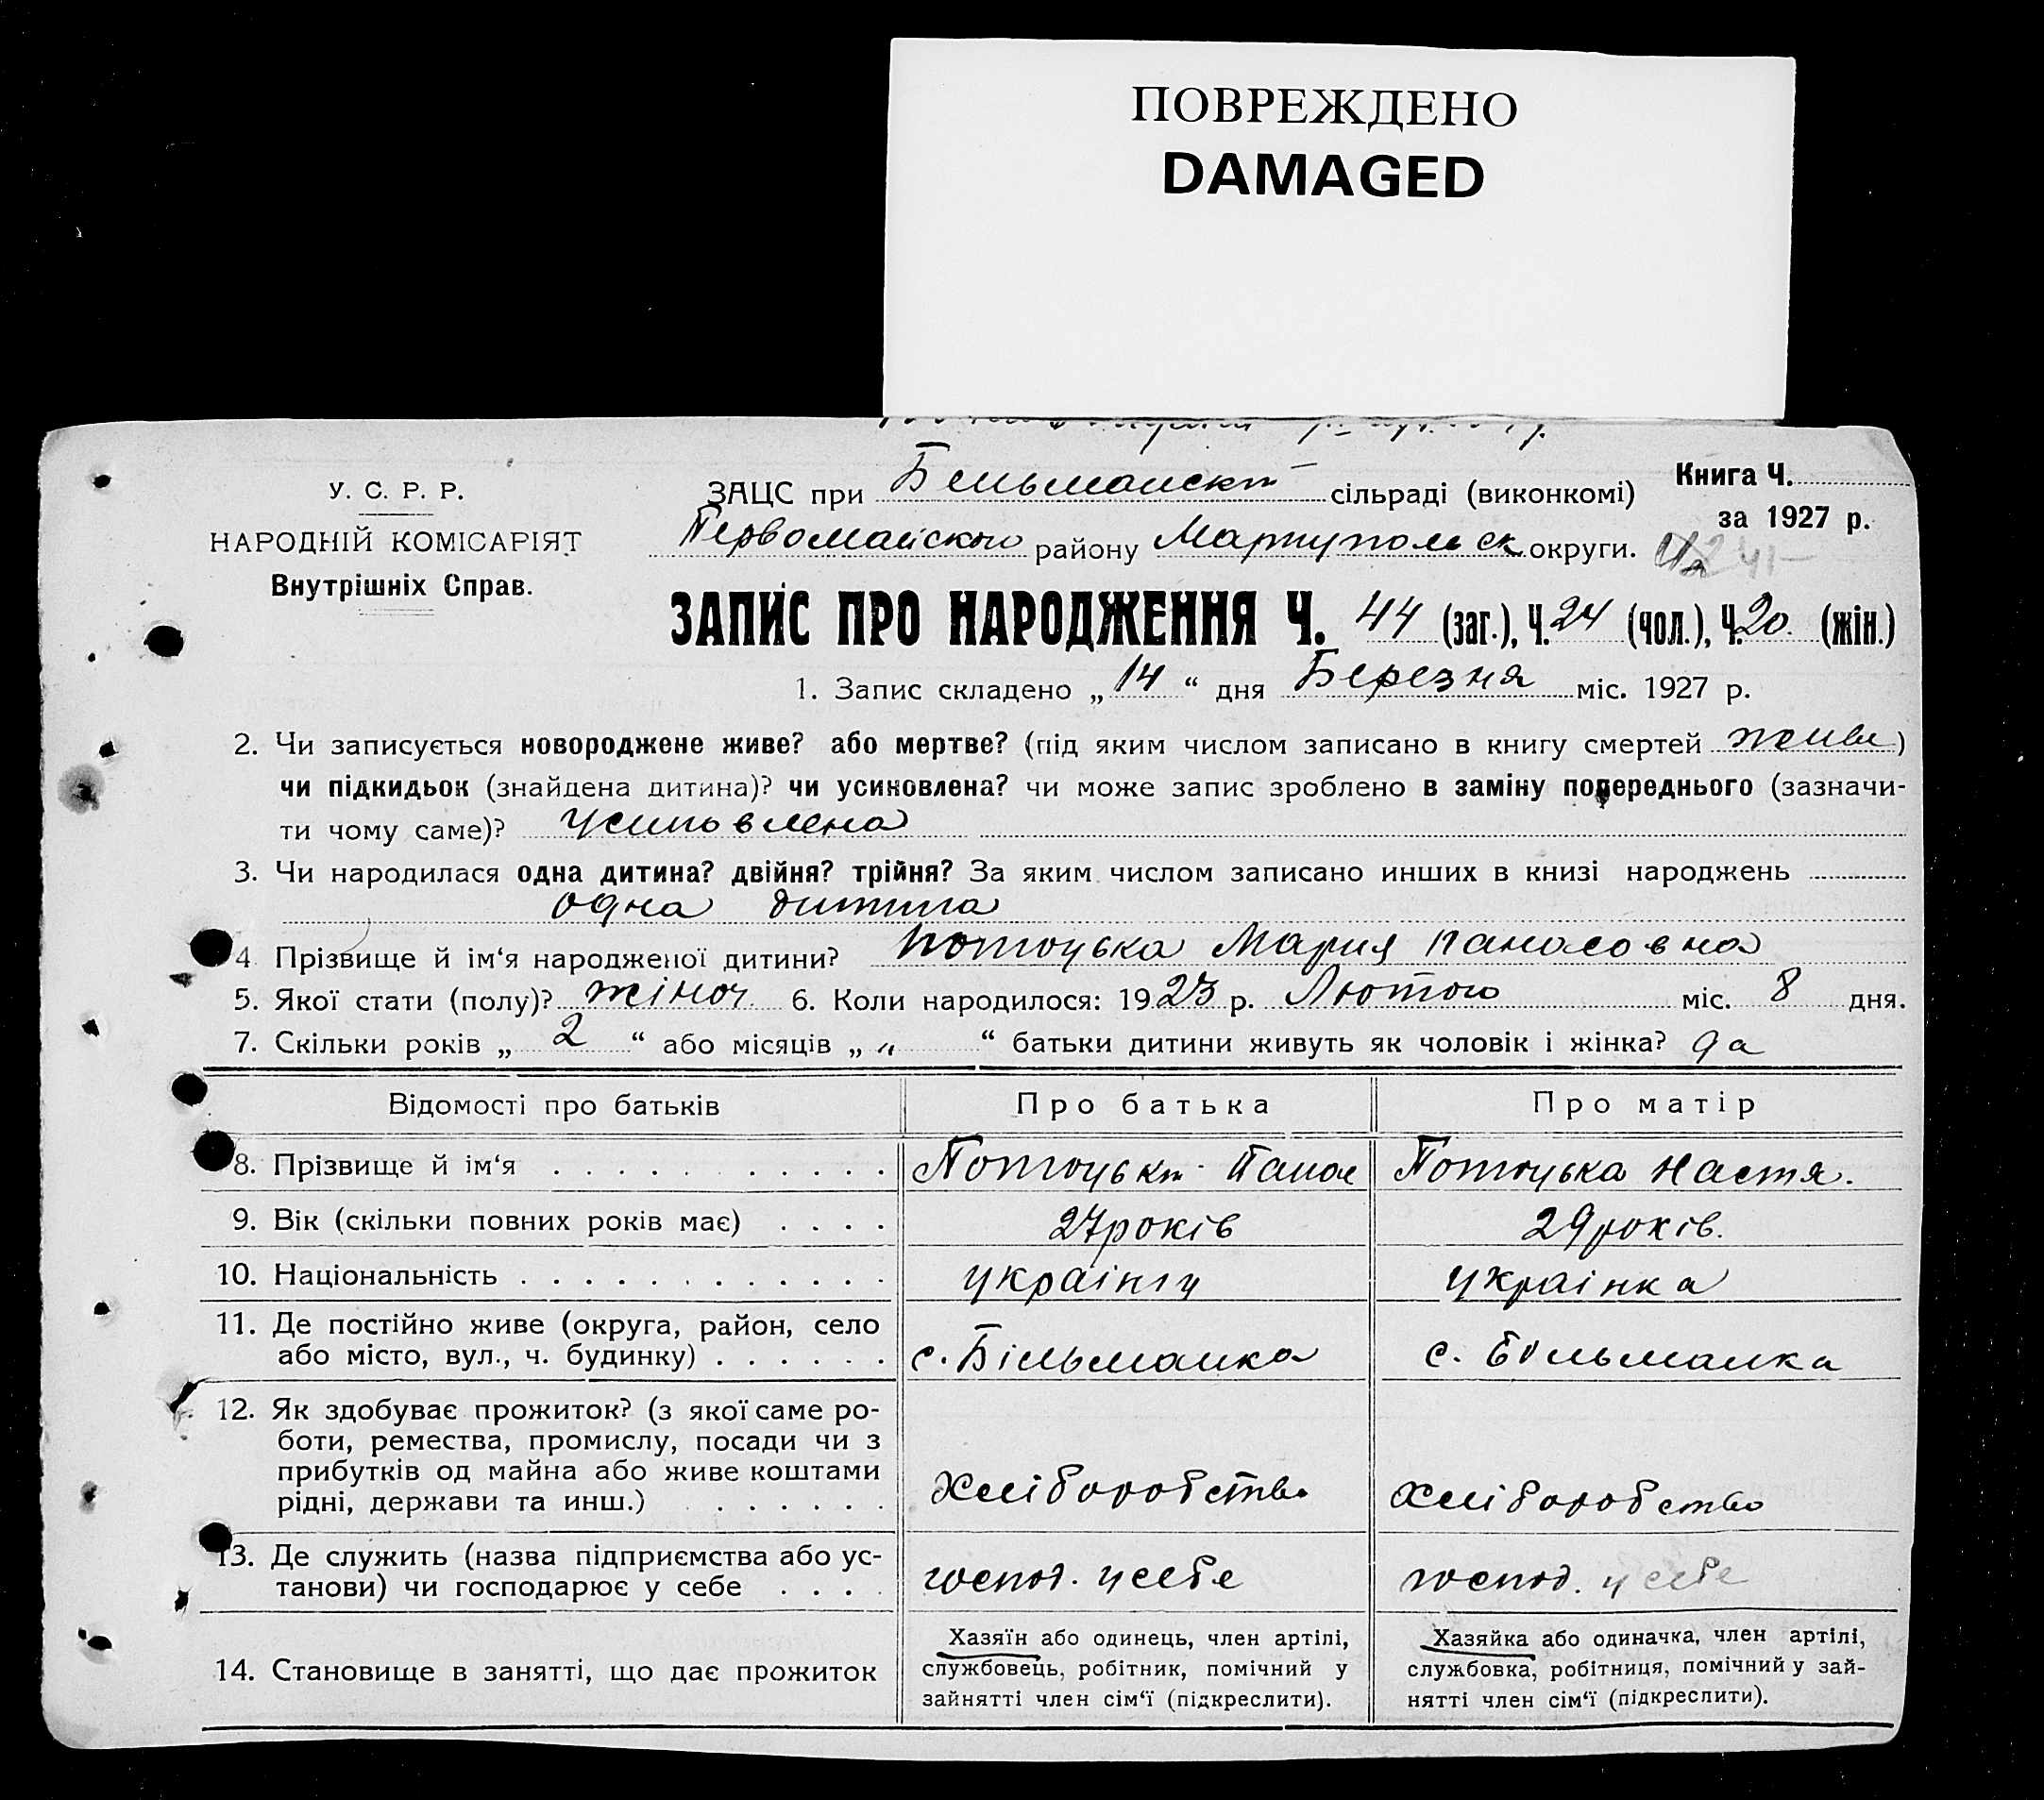 ПОВРЕЖДЕНО
DAMAGED
У. С. Р. Р.
НАРОДНІЙ КОМІСАРІЯТ
Внутрішніх Справ.
ЗАЦС при Бельманскт сільраді (виконкомі)
Книга Ч.
за 1927 р.
Первомайского району Мариупольск округи.
ЗАПИС ПРО НАРОДЖЕННЯ Ч. 44 (заг.), Ч. 24 (чол.), Ч. 20. (жін.)
1. Запис складено „ 14 “ дня Березня міс. 1927 р.
2. Чи записується новороджене живе? або мертве? (під яким числом записано в книгу смертей живе)
чи підкидьок (знайдена дитина)? чи усиновлена? чи може запис зроблено в заміну попереднього (зазначи-
ти чому саме)? усиновлена
3. Чи народилася одна дитина? двійня? трійня? За яким числом записано инших в книзі народжень
одна дитина
4 Прізвище й ім‘я народженої дитини? Потоцька Мария Панасовна
5. Якої стати (полу)? жіноч. 6. Коли народилося: 1923 р. Лютого міс. 8 дня.
7. Скільки років „ 2 “ або місяців „ „ “ батьки дитини живуть як чоловік і жінка? да
Відомості про батьків Про батька Про матір
8. Прізвище й ім‘я Потоцькт Панас Потоцька Настя.
9. Вік (скільки повних років має) 27 років 29 років.
10. Національність українец українка
11. Де постійно живе (округа, район, село
або місто, вул., ч. будинку) с. Більманка с. Більманка
12. Як здобуває прожиток? (з якої саме ро-
боти, ремества, промислу, посади чи з
прибутків од майна або живе коштами
рідні, держави та инш.) Хліборобство хліборобство
13. Де служить (назва підприємства або ус-
танови) чи господарює у себе господ. у себе господ. у себе
14. Становище в занятті, що дає прожиток
Хазяїн або одинець, член артілі,
службовець, робітник, помічний у
зайнятті член сім‘ї (підкреслити).
Хазяйка або одиначка, член артілі,
службовка, робітниця, помічний у зай-
нятті член сім‘ї (підкреслити).